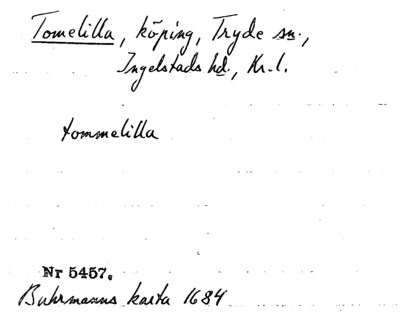 Tomelilla, köping, Tryde sn.,
Ingelstads hd., Kr. l.
tommelilla
Nr 5457.
Buhrmanns karta 1684